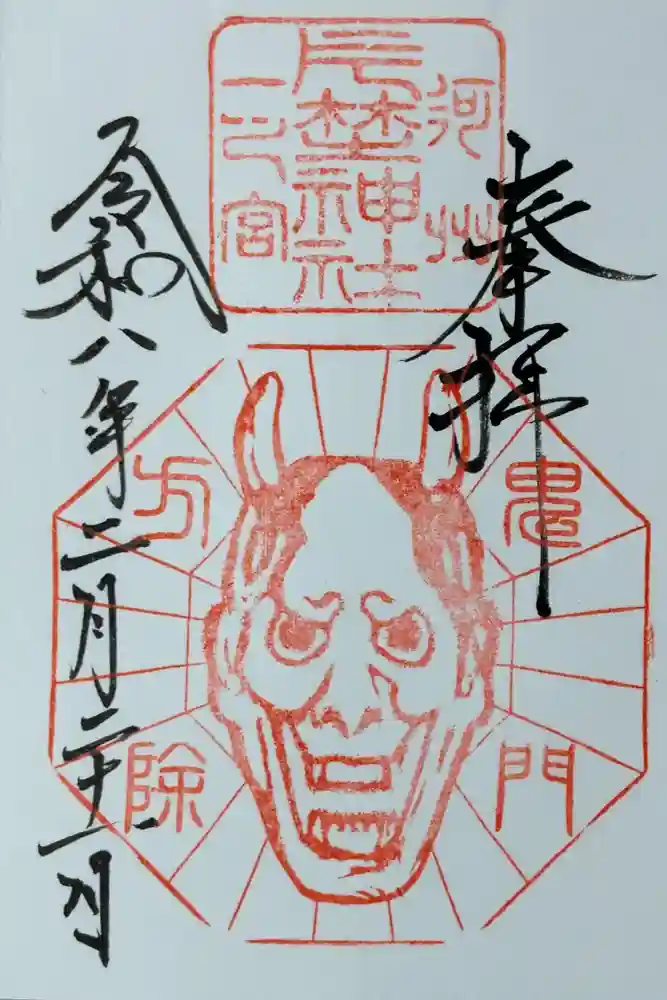 奉拝
河州
片埜神社
一之宮
鬼門
方除
令和八年二月二十一日